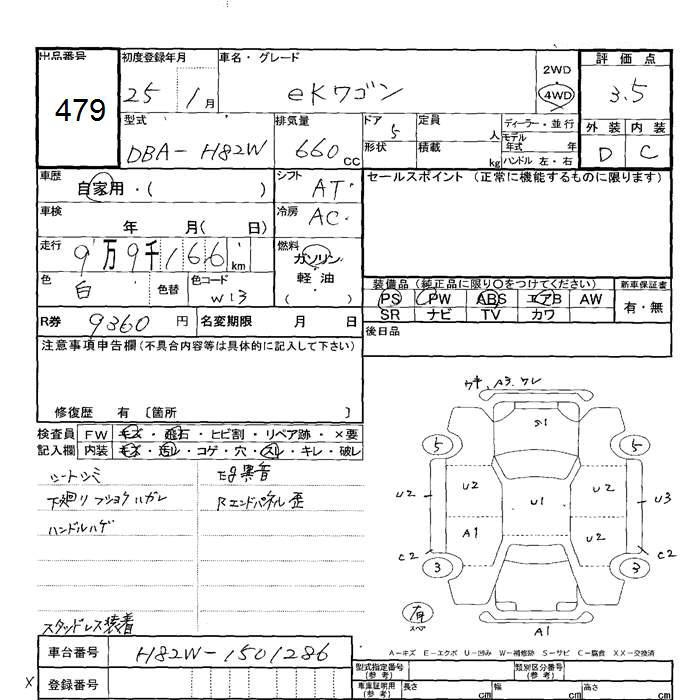 出品番号 初度登録年月 車名・グレード 2WD 評価点
479 25 1月 eKワゴン 4WD 3.5
型式 排気量 ドア 定員 ディーラー・並行 外装 内装
DBA-H82W 660cc 5 人 モデル
年式 年
形状 積載 kg ハンドル 左・右 D C
車歴 自家用・( ) シフト AT セールスポイント(正常に機能するものに限ります)
車検 年 月( 日) 冷房 AC
走行 9万9千166km 燃料 ガソリン
軽油
( )
色 白 色替 色コード W13
装備品(純正品に限り○をつけてください) 新車保証書
PS PW ABS エアB AW 有・無
SR ナビ TV カワ
R券 9360円 名変期限 月 日 後日品
注意事項申告欄(不具合内容等は具体的に記入して下さい)
修復歴 有 〔箇所 〕
検査員 FW キズ・飛石・ヒビ割・リペア跡・×要
記入欄 内装 キズ・汚レ・コゲ・穴・スレ・キレ・破レ
シートシミ Eg異音
下廻りフショクハガレ Rエンドパネル歪
ハンドルハゲ
スタッドレス装着
A3
5 5
U2 U2 U1 U2 U3
A1 U2
C2 C2
3 3
A1
A-キズ E-エクボ U-凹み W-補修跡 S-サビ C-腐食 XX-交換済
車台番号 H82W-1501286
登録番号
型式指定番号
(参考) 類別区分番号
(参考)
車庫証明用
(参考) 長さ cm 幅 cm 高さ cm
X